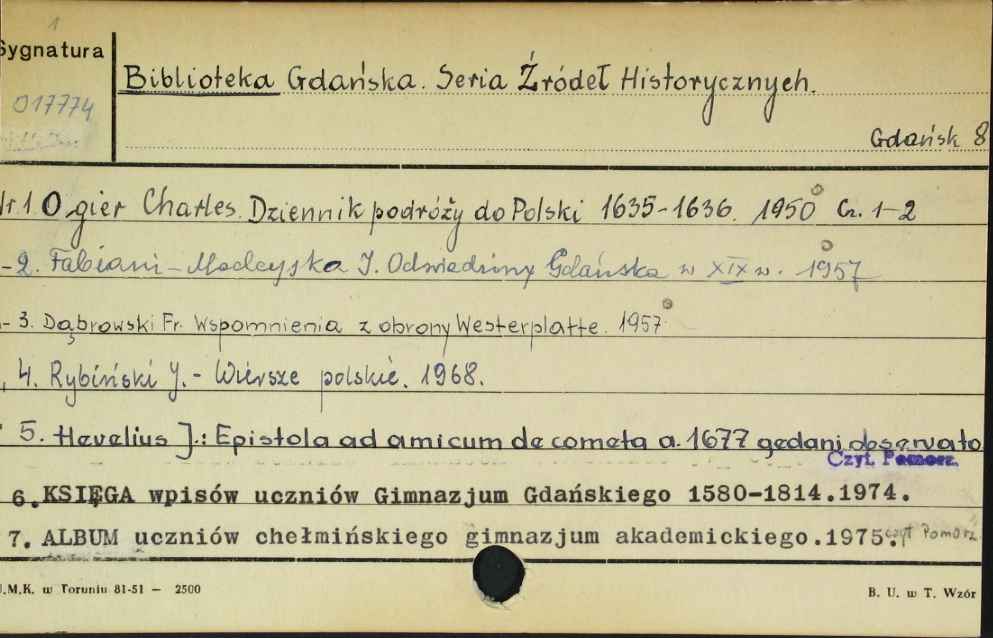 1
Sygnatura
017774
Biblioteka Gdańska. Seria Źródeł Historycznych.
Gdańsk 8
Nr.1 Ogier Charles. Dziennik podróży do Polski 1635-1636. 1950 Cz. 1-2
-2. Fabiani-Madeyska I. Odwiedziny Gdańska w XIX w. 1957
- 3. Dąbrowski Fr. Wspomnienia z obrony Westerplatte. 1957
, 4. Rybiński J. - Wiersze polskie. 1968.
5. Hevelius J.: Epistola ad amicum de cometa a. 1677 gedani observato
Czyt. Pomorz.
6. KSIĘGA wpisów uczniów Gimnazjum Gdańskiego 1580-1814.1974.
7. ALBUM uczniów chełmińskiego gimnazjum akademickiego.1975. czyt Pomorz
U.M.K. w Toruniu 81-51 — 2500
B. U. w T. Wzór